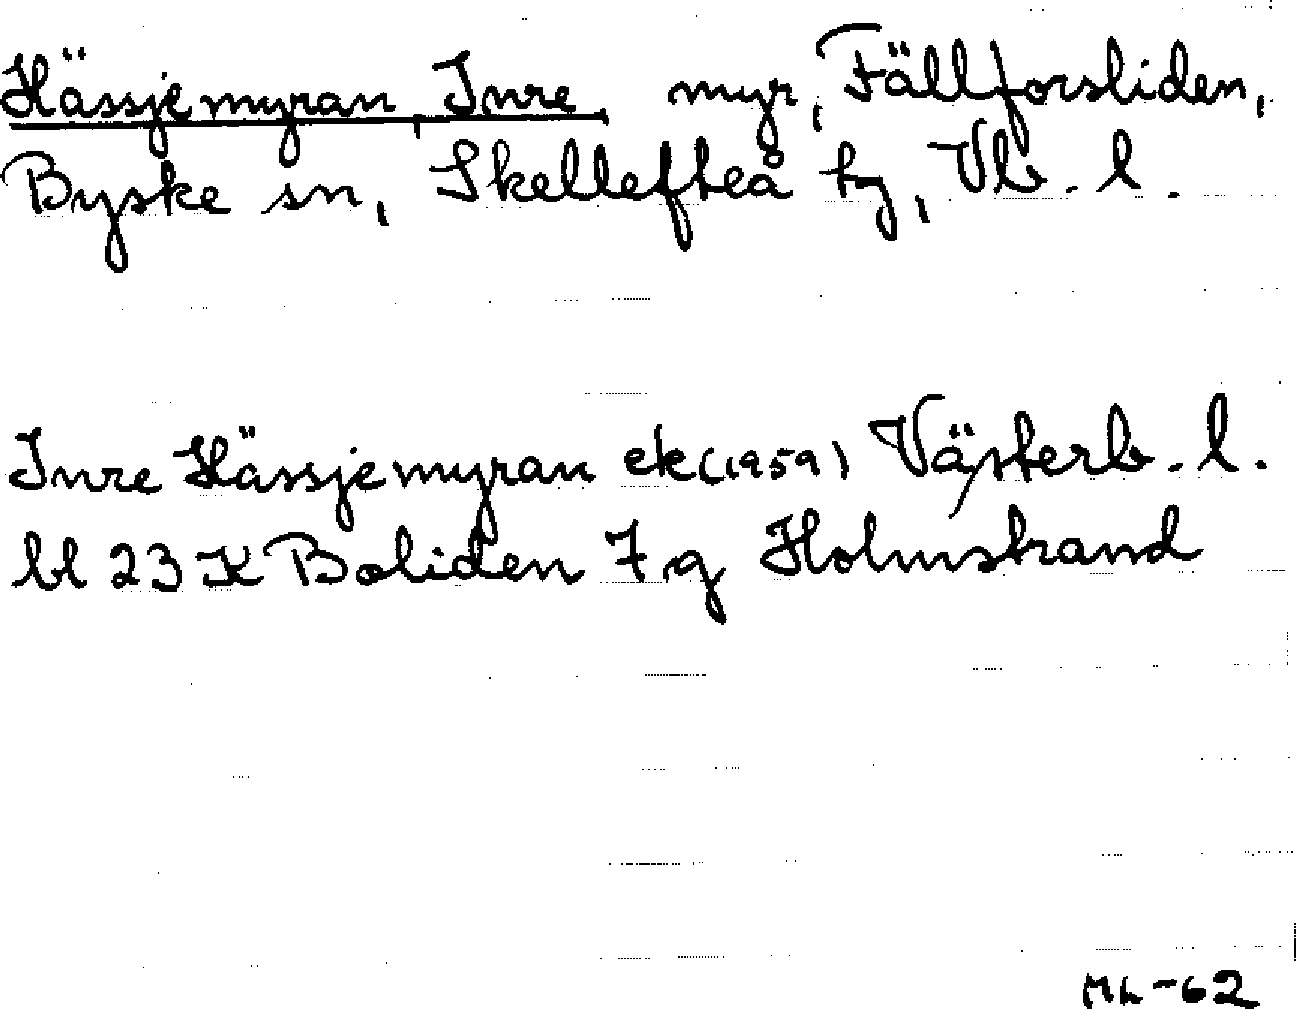 Hässjemyran, Inre, myr, Fällforsliden,
Byske sn, Skellefteå ty, Vb. l.
Inre Hässjemyran ek (1959) Västerb. l.
bl 23 K Boliden 7 g Holmstrand
ML-62